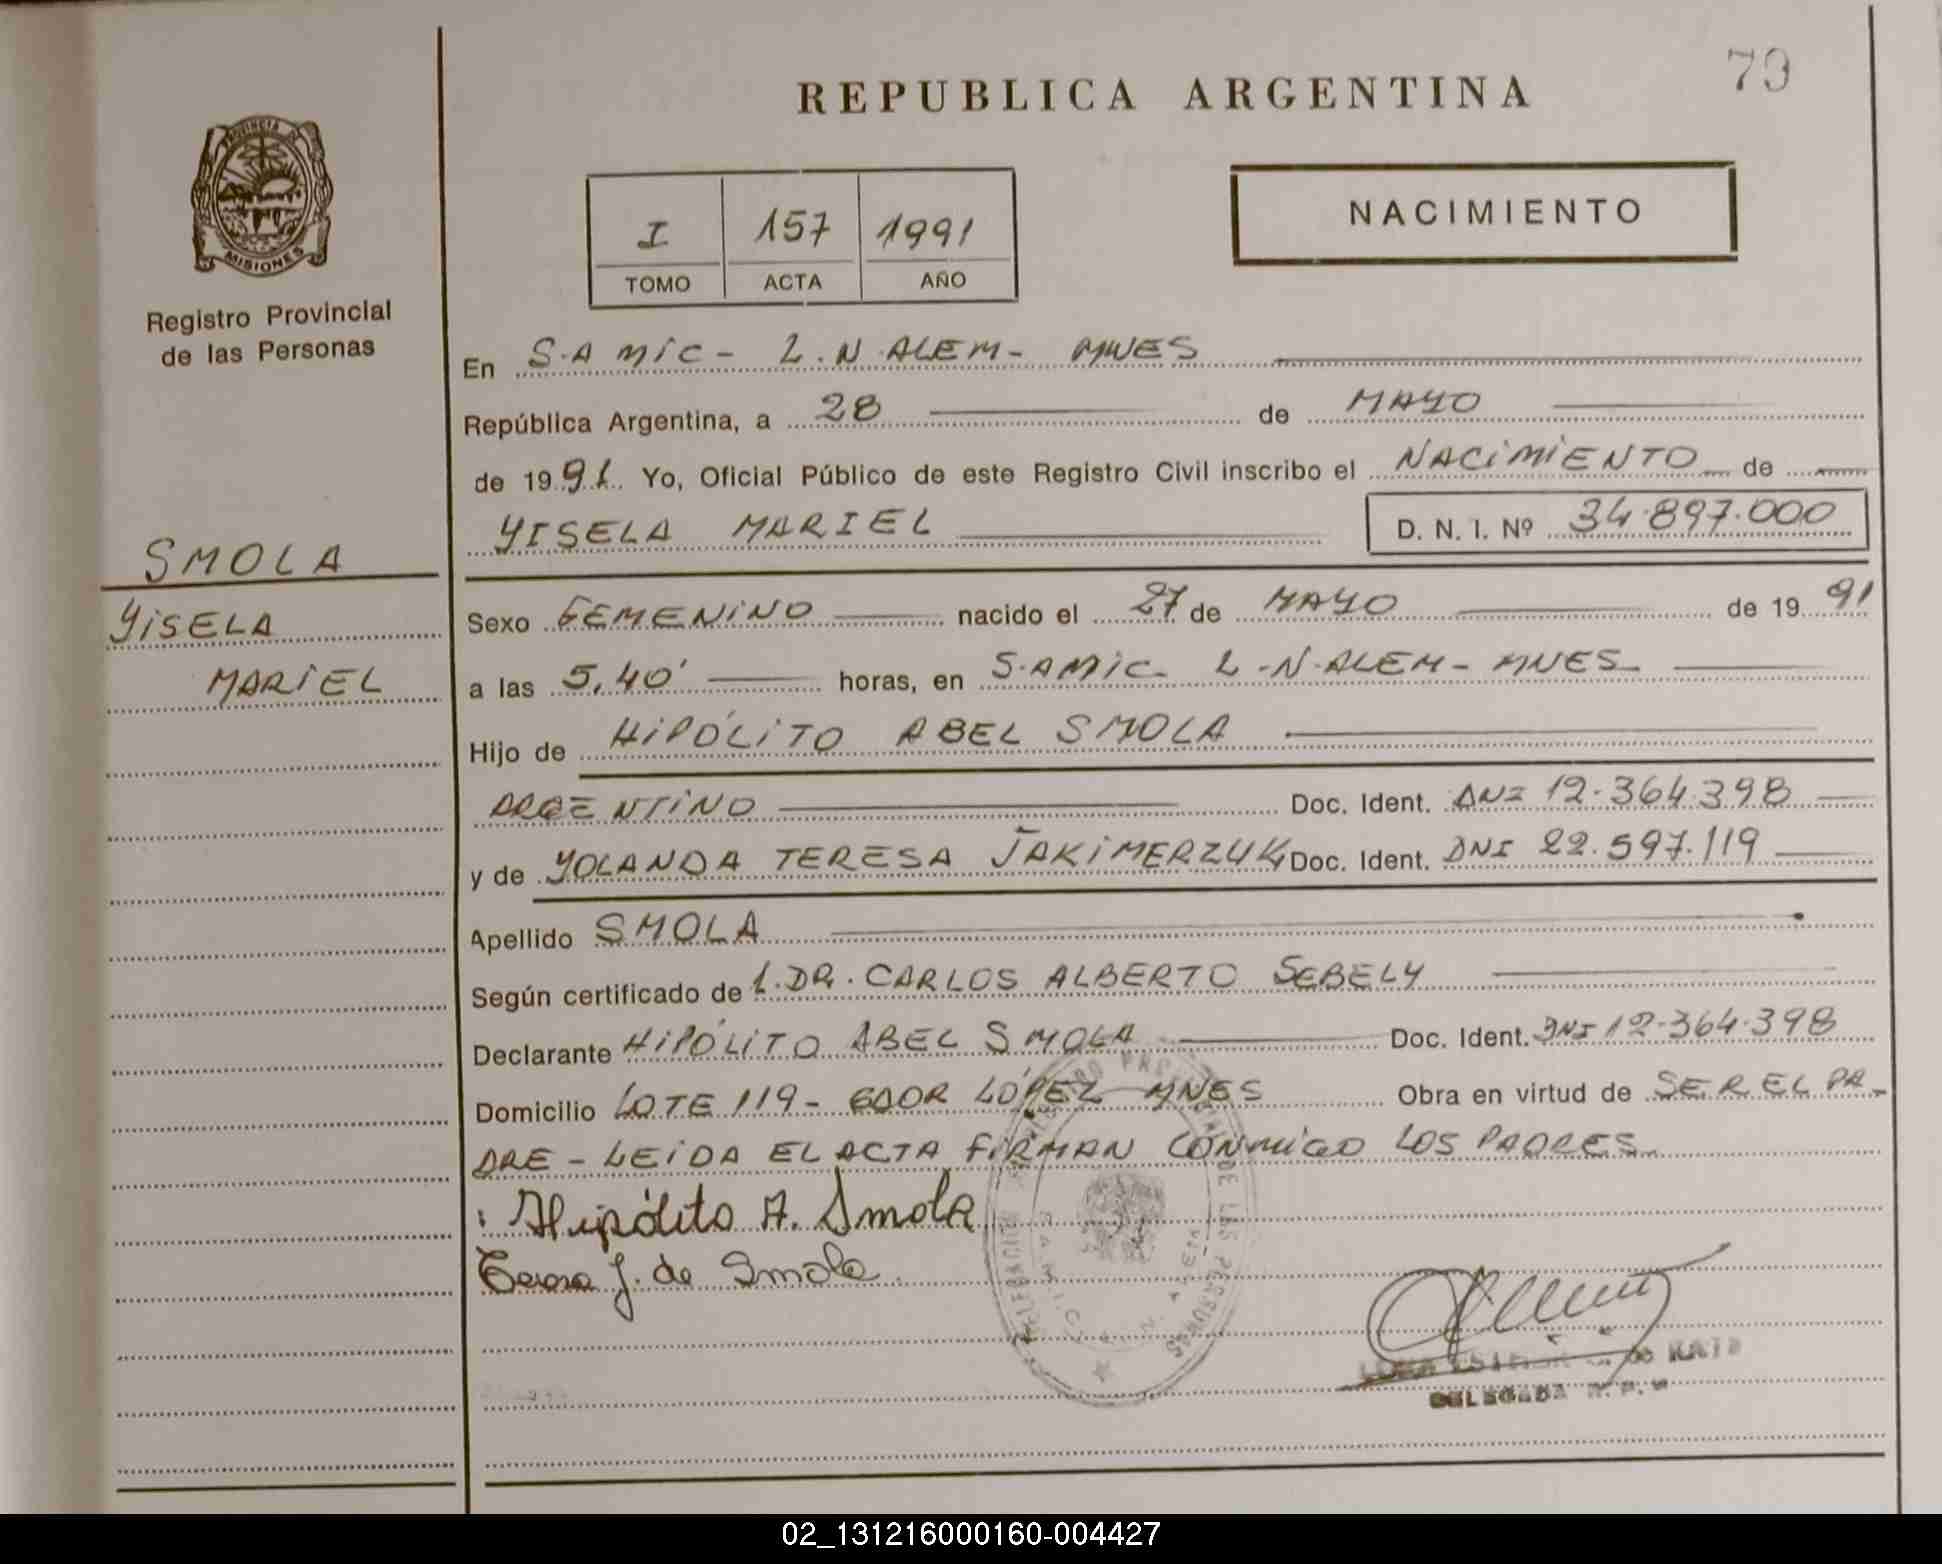 79
REPUBLICA ARGENTINA
PROVINCIA DE
MISIONES
Registro Provincial
de las Personas
I 157 1991
TOMO ACTA AÑO
NACIMIENTO
En S.A MIC- L.N.ALEM- MNES
República Argentina, a 28 de MAYO
de 1991 Yo, Oficial Público de este Registro Civil inscribo el NACIMIENTO de
YISELA MARIEL D. N. I. Nº 34.897.000
SMOLA
YISELA
MARIEL
Sexo FEMENINO nacido el 27 de MAYO de 1991
a las 5,40' horas, en S.A MIC- L.N.ALEM- MNES
Hijo de HIPÓLITO ABEL SMOLA
ARGENTINO Doc. Ident. DNI 12.364.398
y de YOLANDA TERESA JAKIMERZUK Doc. Ident. DNI 22.597.119
Apellido SMOLA
Según certificado de 1.DR. CARLOS ALBERTO SEBELY
Declarante HIPÓLITO ABEL SMOLA Doc. Ident. DNI 12.364.398
Domicilio LOTE 119- GDOR LÓPEZ MNES Obra en virtud de SER EL PA-
DRE - LEIDA EL ACTA FIRMAN CONMIGO LOS PADRES
Hipólito A. Smola
Teresa J. de Smola
DE LAS PERSONAS
DELEGADA
02_131216000160-004427